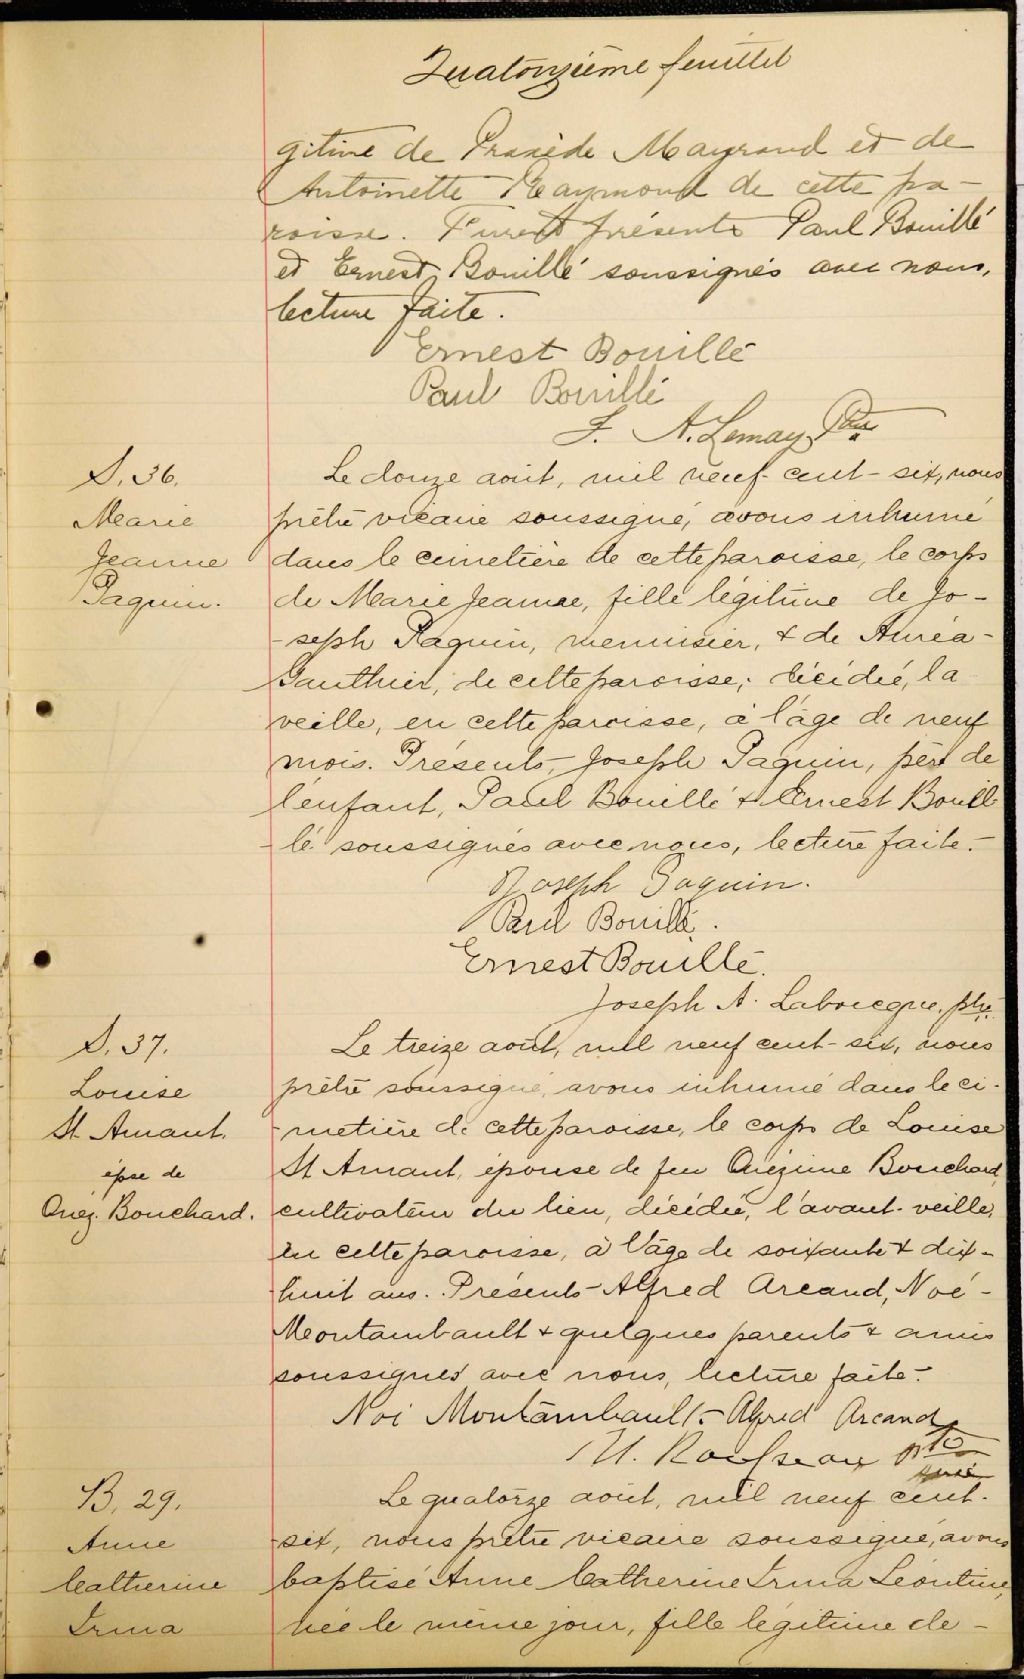 Quatorzième feuillet
gitime de Praxède Mayrand et de
Antoinette Raymond de cette pa-
roisse. Furent présents Paul Bouillé
et Ernest Bouillé soussignés avec nous,
lecture faite.
Ernest Bouillé
Paul Bouillé
F. A. Lemay Ptre
S. 36.
Marie
Jeanne
Paquin.
Le douze août, mil neuf-cent-six, nous
prêtre vicaire soussigné, avons inhumé
dans le cimetière de cette paroisse, le corps
de Marie Jeanne, fille légitime de Jo-
-seph Paquin, menuisier, & de Auréa-
Gauthier, de cette paroisse; décédée, la
veille, en cette paroisse, à l'âge de neuf
mois. Présents, Joseph Paquin, père de
l'enfant, Paul Bouillé & Ernest Bouil
-lé soussignés avec nous, lecture faite.-
Joseph Paquin.
Paul Bouillé.
Ernest Bouillé.
Joseph A. Labrecque, ptre.
S. 37.
Louise
St Amant.
épse de
Onéz. Bouchard.
Le treize août, mil neuf cent-six, nous
prêtre soussigné, avons inhumé dans le ci-
-metière de cette paroisse, le corps de Louise
St Amant, épouse de feu Onézime Bouchard,
cultivateur du lieu, décédée, l'avant-veille,
en cette paroisse, à l'âge de soixante & dix-
huit ans. Présents-Alfred Arcand, Noé-
Montambault & quelques parents & amis
soussignés avec nous, lecture faite.-
Noé Montambault- Alfred Arcand
H. Rousseau ptre
curé
B. 29.
Anne
Catherine
Irma
Le quatorze août, mil neuf cent-
six, nous prêtre vicaire soussigné, avons
baptisé Anne Catherine Irma Léontine,
née le même jour, fille légitime de-